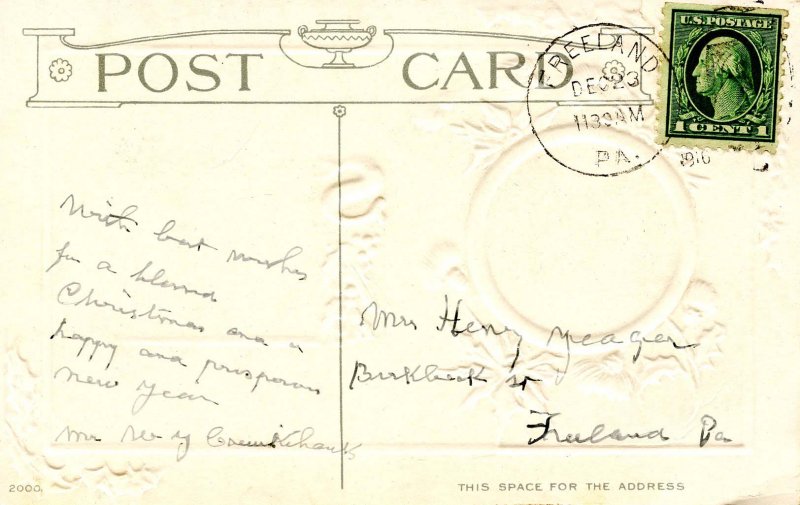 POST CARD
FREELAND
DEC 23
1130 AM
PA.
1916
U.S. POSTAGE
1 CENT 1
With best wishes
for a blessed
Christmas and a
happy and prosperous
New Year
Mrs Henry Yeager
Birkbeck st
Freeland Pa
2000.
THIS SPACE FOR THE ADDRESS